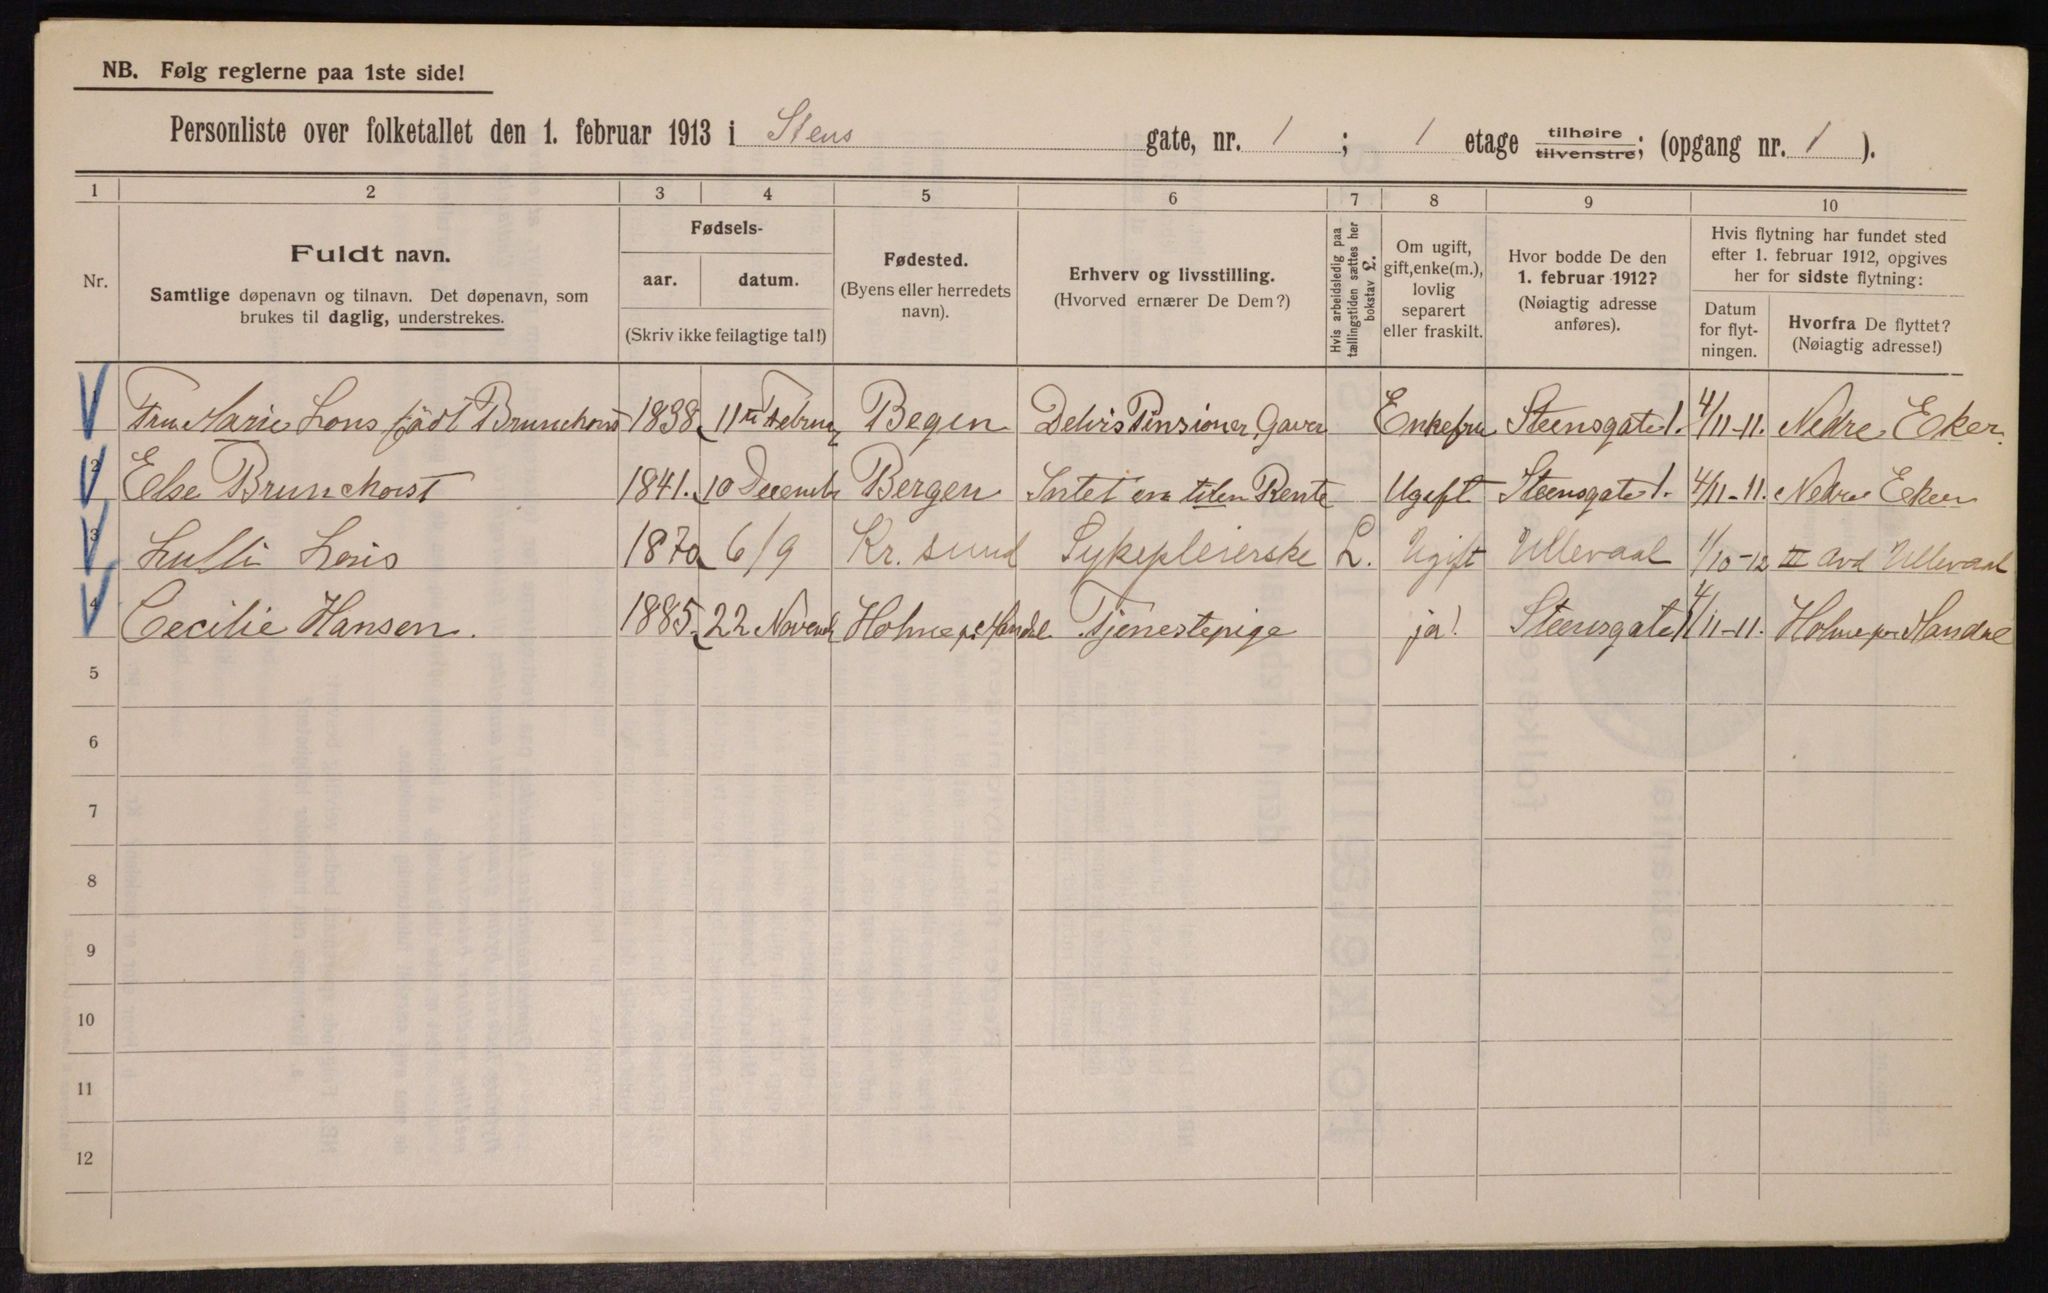 NB. Følg reglerne paa 1ste side!
Personliste over folketallet den 1. februar 1913 i Stens gate, nr. 1 ; 1 etage tilhøire tilvenstre; (opgang nr. 1 ).
1 2 3 4 5 6 7 8 9 10
Nr.
Fuldt navn.
Samtlige døpenavn og tilnavn. Det døpenavn, som
brukes til daglig, understrekes.
Fødsels-
aar. datum.
(Skriv ikke feilagtige tal!)
Fødested.
(Byens eller herredets
navn).
Erhverv og livsstilling.
(Hvorved ernærer De Dem?)
Hvis arbeidsledig paa
tællingstiden sættes her
bokstav L.
Om ugift,
gift, enke(m.),
lovlig
separert
eller fraskilt.
Hvor bodde De den
1. februar 1912?
(Nøiagtig adresse
anføres).
Hvis flytning har fundet sted
efter 1. februar 1912, opgives
her for sidste flytning:
Datum
for flyt-
ningen.
Hvorfra De flyttet?
(Nøiagtig adresse!)
Fru Marie Lous född Brunchorst 1838 11te Februar Begen Delvis Pensioner, Gaver Enkefru Steensgate 1. 4/11-11. Nedre Eker.
2 Else Brunchorst 1841. 10 Decembr Bergen Rente Ugift Steensgate 1. 4/11-11. Nedre Eker
3 Lulli Lous 1870 6/9 Kr. sund Sykepleierske L. Ugift Ullevaal 1/10-12 Avd Ullevaal
4 Cecilie Hansen. 1885. 22 Novemb Holme pr. Mandal Tjenestepige ja! Steensgate 1 4/11-11. Holme pr Mandal
5
6
7
8
9
10
11
12